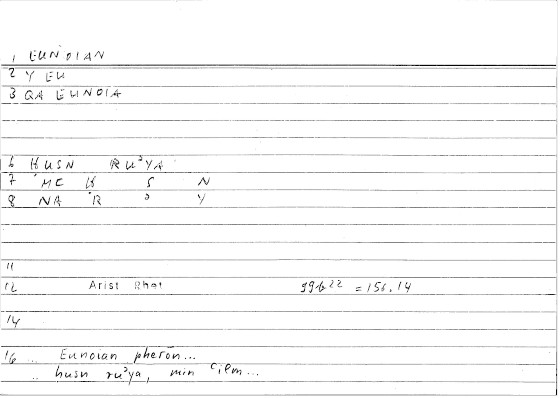 1 EUNOIAN
2 Y EU
3 QA EUNOIA
6 HUSN RUʾYA
7 MC H S N
8 NA R ʾ Y
11
12 Arist Rhet 99b22 = 156.14
14
16 .. Eunoian pherōn...
.. husn ruʾya, min ʿilm...